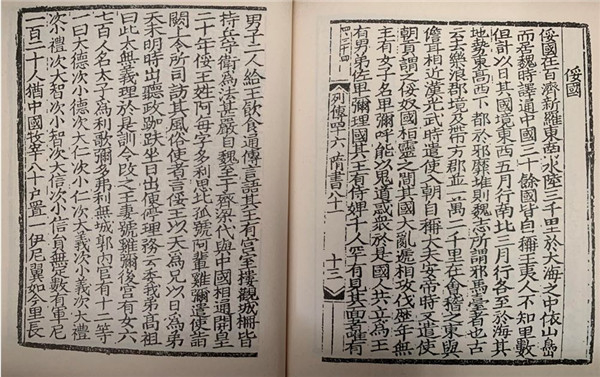 俀國
俀國在百濟新羅東南水陸三千里於大海之中依山島
而居魏時譯通中國三十餘國皆自稱王夷人不知里數
但計以日其國境東西五月行南北三月行各至於海其
地勢東高西下都於邪靡堆則魏志所謂邪馬臺者也古
云去樂浪郡境及帶方郡並一萬二千里在會稽之東與
儋耳相近漢光武時遣使入朝自稱大夫安帝時又遣使
朝貢謂之俀奴國桓靈之間其國大亂遞相攻伐歷年無
主有女子名卑彌呼能以鬼道惑衆於是國人共立爲王
有男弟佐卑彌理國其王有侍婢千人罕有見其面者唯有
列傳四十六 隋書八十一 十三
男子二人給王飲食通傳言語其王有宮室樓觀城柵皆
持兵守衛爲法甚嚴自魏至于齊梁代與中國相通開皇
二十年俀王姓阿每字多利思比孤號阿輩雞彌遣使詣
闕上令所司訪其風俗使者言俀王以天爲兄以日爲弟
天未明時出聽政跏趺坐日出便停理務云委我弟高祖
曰此太無義理於是訓令改之王妻號雞彌後宮有女六
七百人名太子爲利歌彌多弗利無城郭內官有十二等
一曰大德次小德次大仁次小仁次大義次小義次大禮
次小禮次大智次小智次大信次小信員無定數有軍尼
一百二十人猶中國牧宰八十戶置一伊尼翼如今里長